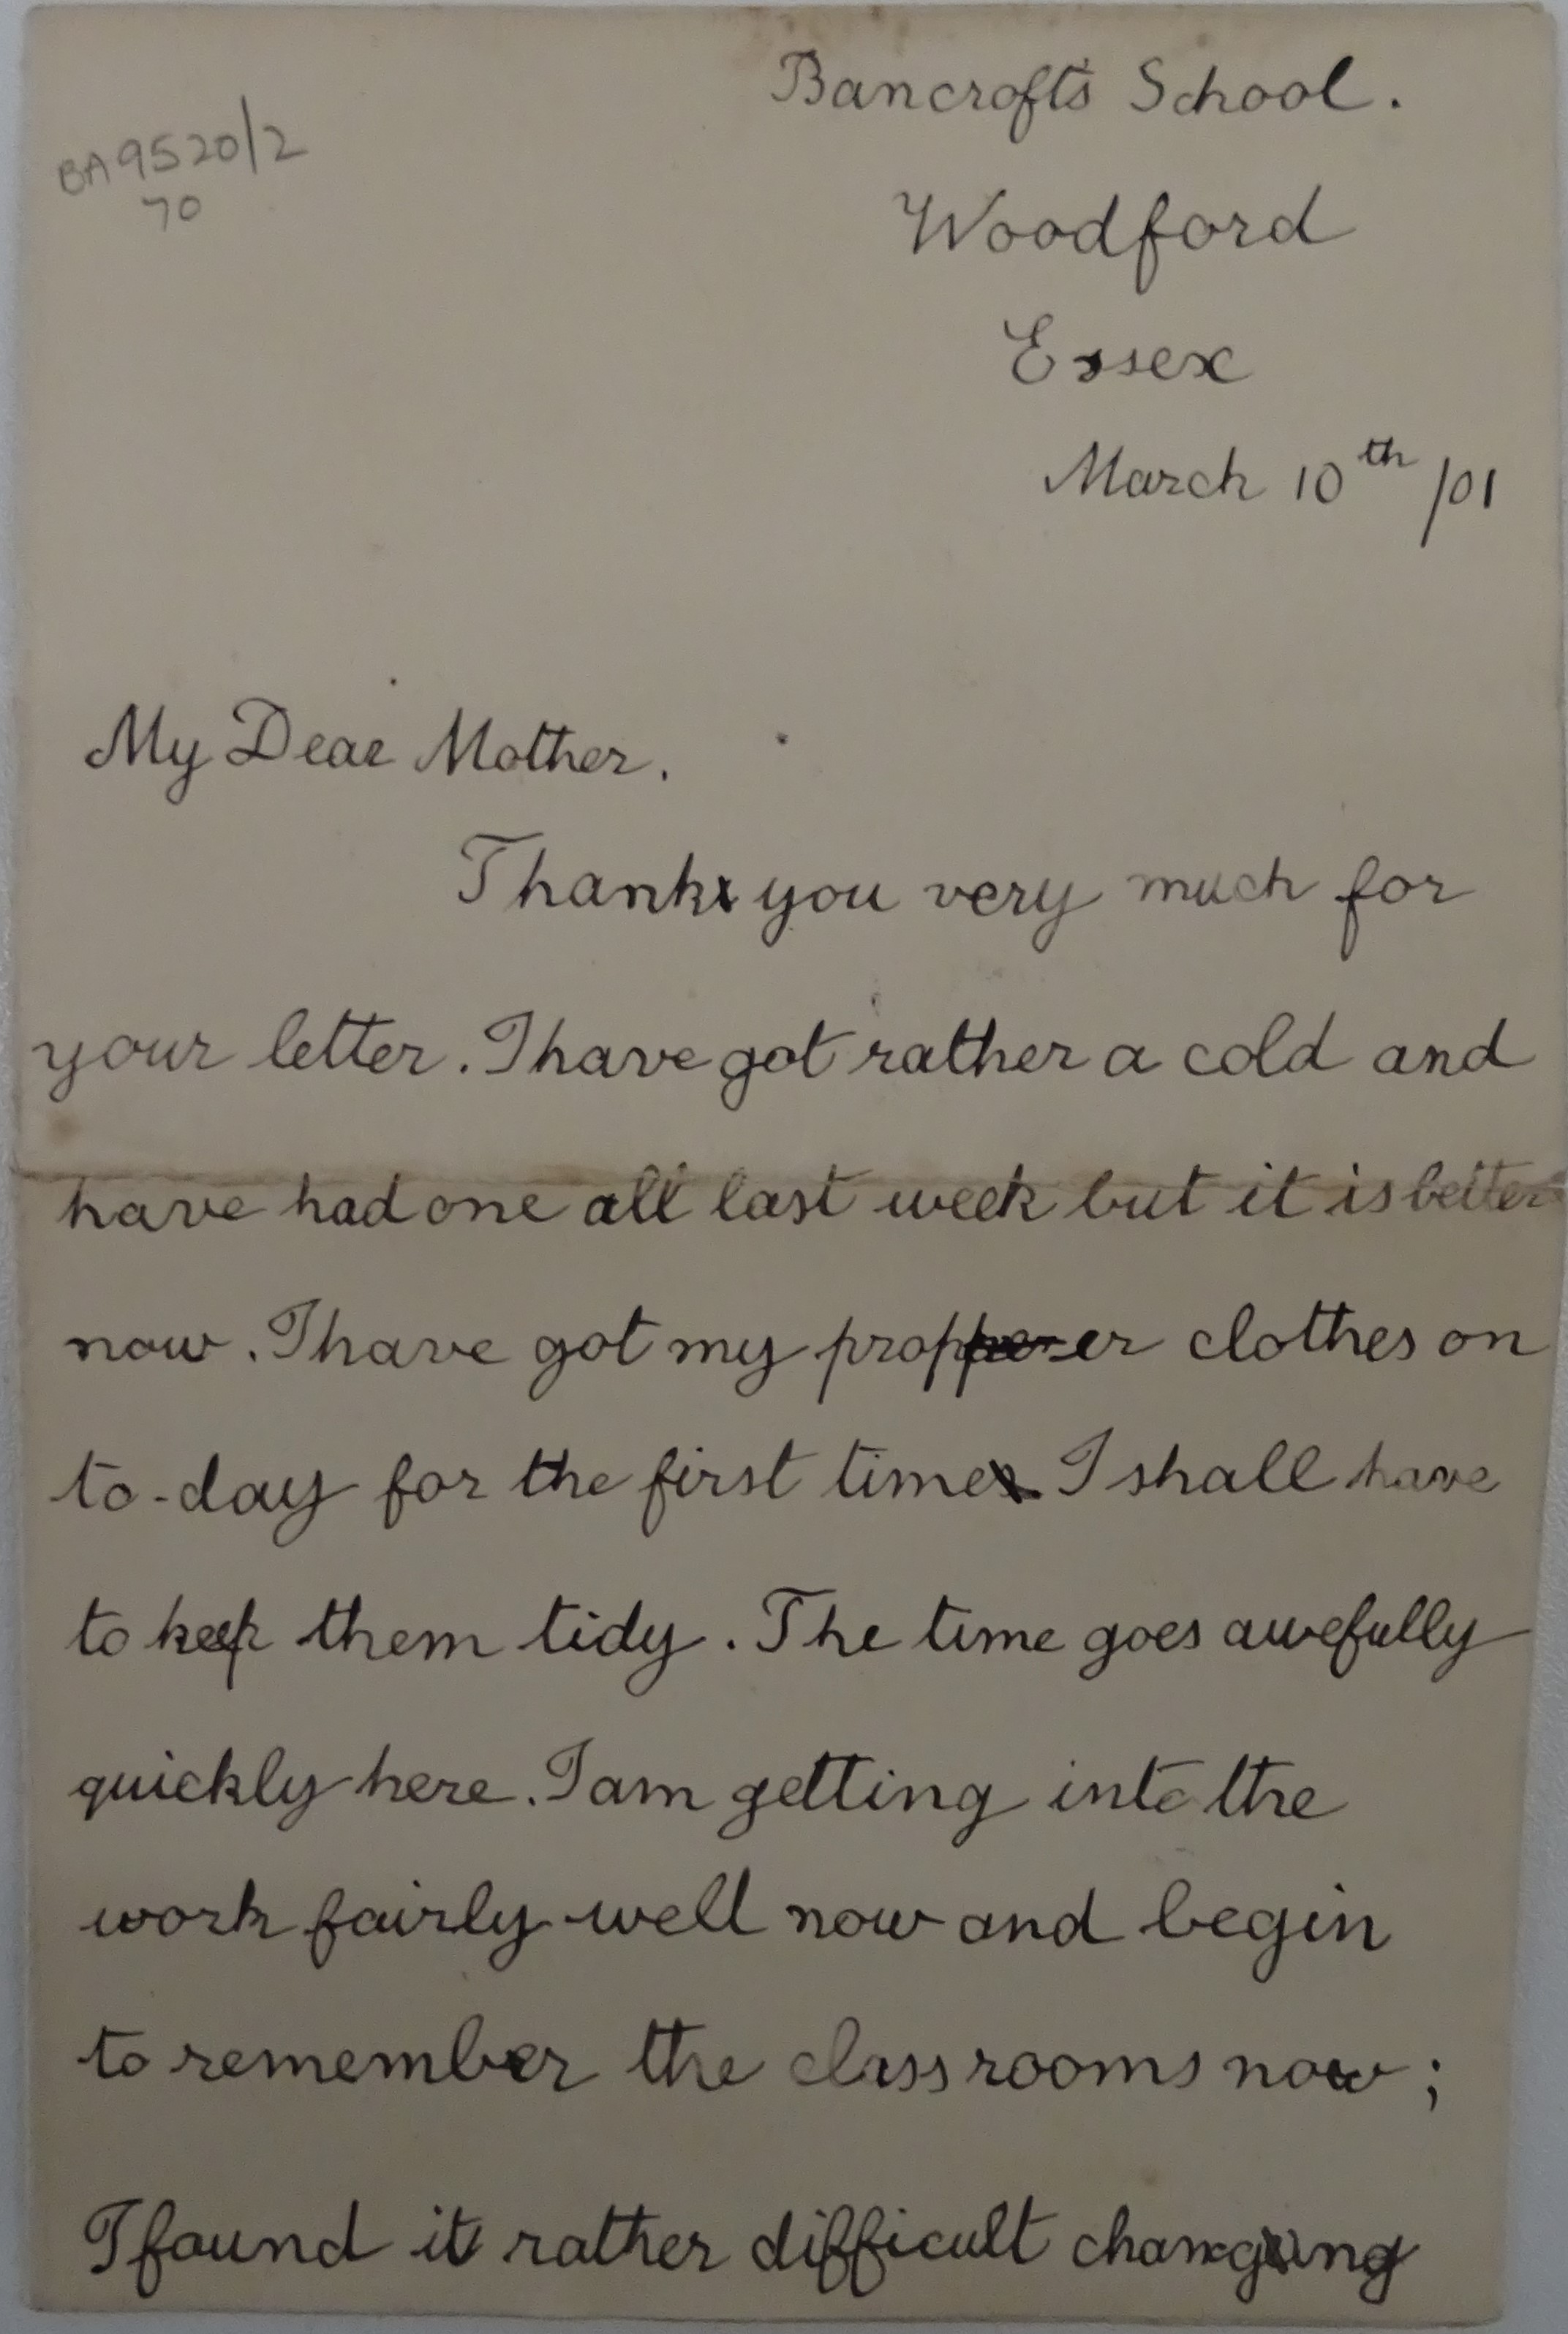 Bancroft's School.
BA9520/2
70
Woodford
Essex
March 10th /01
My Dear Mother.
Thank you very much for
your letter. I have got rather a cold and
have had one all last week but it is better
now. I have got my propper clothes on
to-day for the first time. I shall have
to keep them tidy. The time goes awefully
quickly here. I am getting into the
work fairly well now and begin
to remember the class rooms now;
I found it rather difficult changing